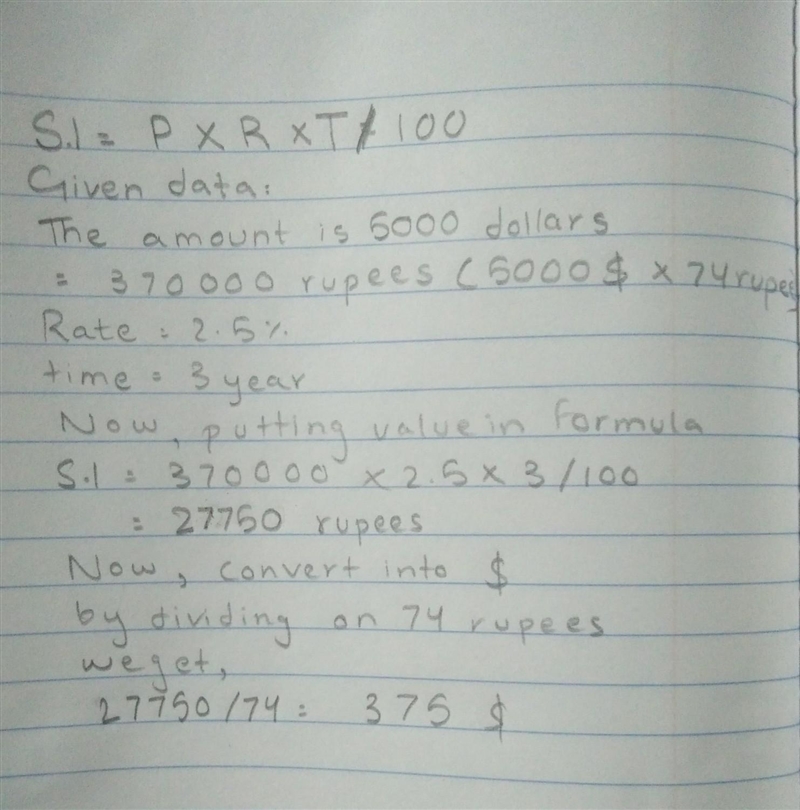 S.I = P X R X T / 100
Given data:
The amount is 5000 dollars
= 370000 rupees (5000 $ x 74 rupees
Rate = 2.5%
time = 3 year
Now, putting value in formula
S.I = 370000 x 2.5 x 3 / 100
= 27750 rupees
Now, convert into $
by dividing on 74 rupees
we get,
27750 / 74 = 375 $